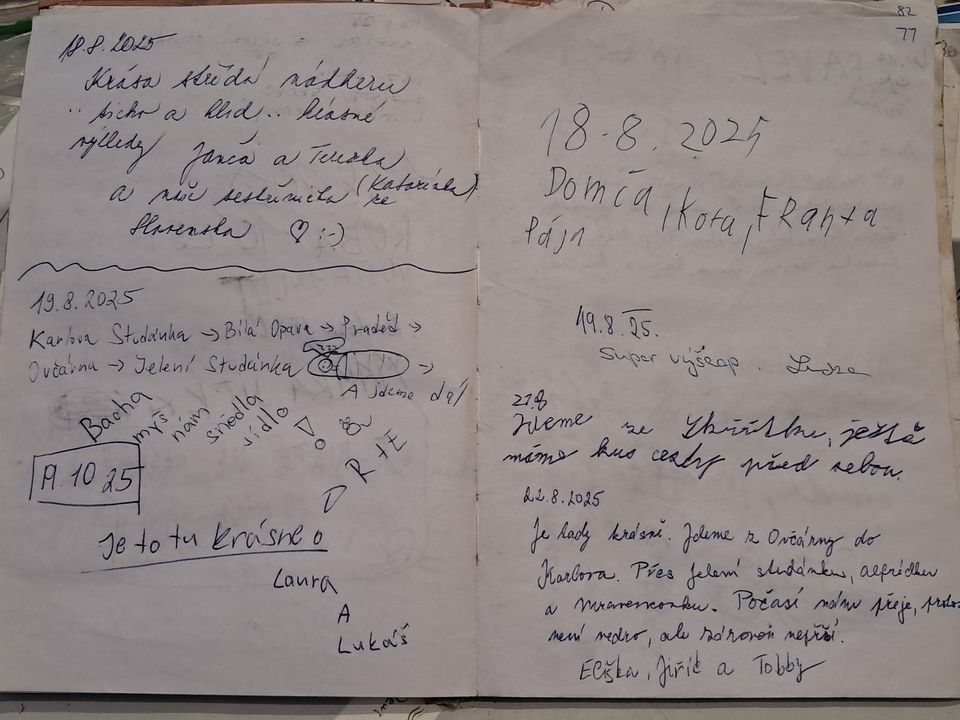 18.8.2025
Krása střídá nádheru
.. ticho a klid.. krásné
výhledy Janča a Terezka
a naše sestřenička (Katarínka)
ze
Slovenska ♡ :-)
19.8.2025
Karlova Studánka → Bílá Opava → Praděd →
Ovčárna → Jelení Studánka →
A jdeme dál
Bacha
myš
nám
snědla
jídlo
!
&
R + E
A. 10 25
Je to tu krásné
Laura
A
Lukáš
82
77
18.8.2025
Domča, Kota, FRanta
Pája
19.8.25.
Super výšlap.
21.8
Jdeme ze, ještě
máme kus cesty před sebou.
22.8.2025
Je tady krásně. Jdeme z Ovčárny do
Karlova. Přes Jelení studánku, Alfrédku
a Mravencovku. Počasí nám přeje,
není vedro, ale zároveň neprší.
Eliška, Jiřík a Tobby